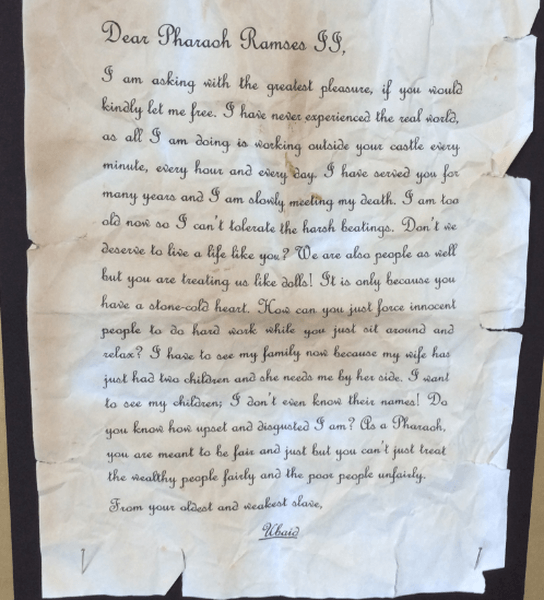 Dear Pharaoh Ramses II,
I am asking with the greatest pleasure, if you would
kindly let me free. I have never experienced the real world,
as all I am doing is working outside your castle every
minute, every hour and every day. I have served you for
many years and I am slowly meeting my death. I am too
old now so I can't tolerate the harsh beatings. Don't we
deserve to live a life like you? We are also people as well
but you are treating us like dolls! It is only because you
have a stone-cold heart. How can you just force innocent
people to do hard work while you just sit around and
relax? I have to see my family now because my wife has
just had two children and she needs me by her side. I want
to see my children; I don't even know their names! Do
you know how upset and disgusted I am? As a Pharaoh,
you are meant to be fair and just but you can't just treat
the wealthy people fairly and the poor people unfairly.
From your oldest and weakest slave,
Ubaid